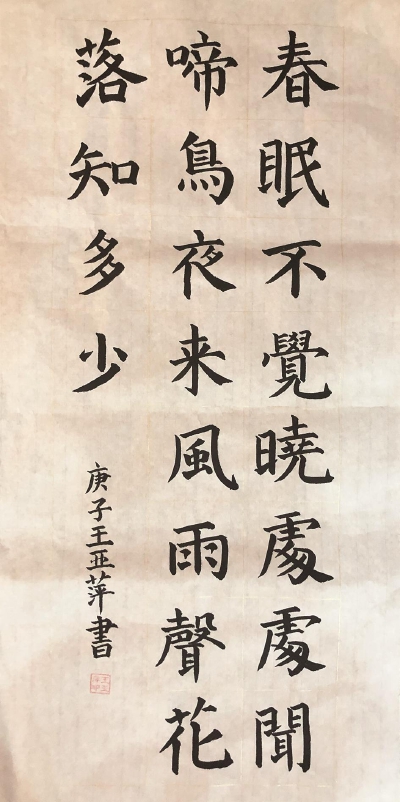 春眠不覺曉處處聞
啼鳥夜来風雨聲花
落知多少
庚子王亚萍書